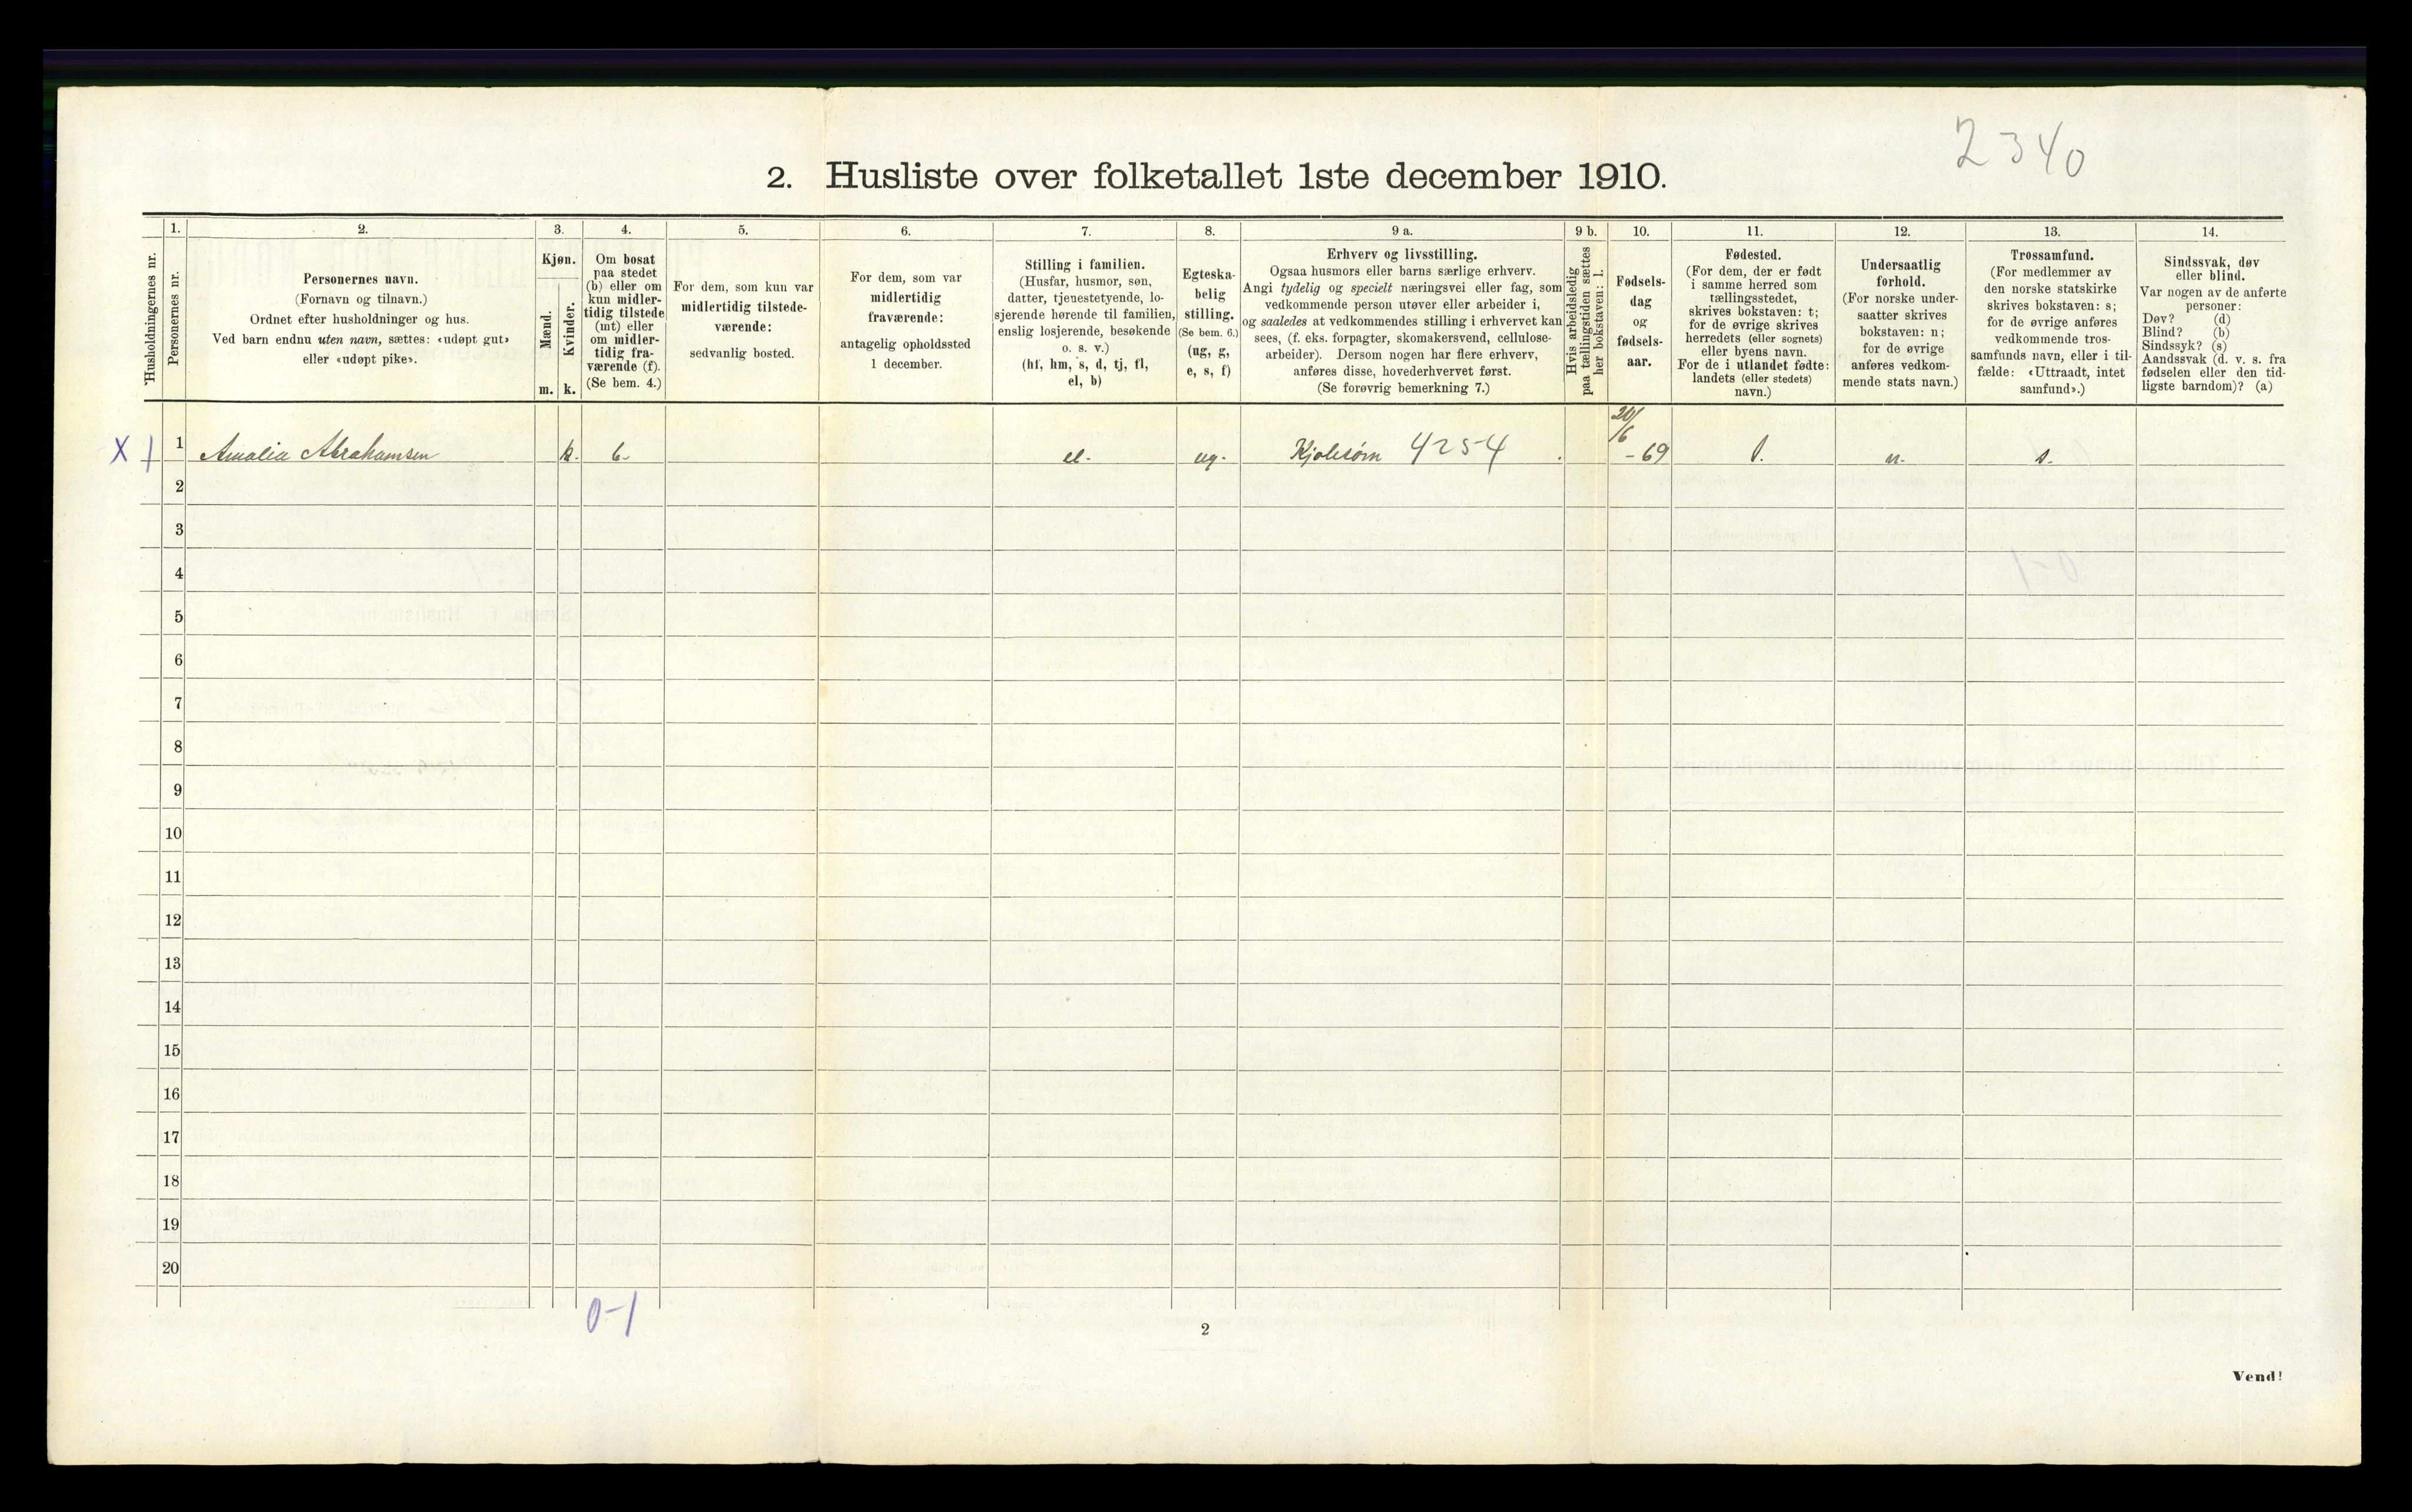 2340
2. Husliste over folketallet 1ste december 1910.
Husholdningernes nr.
1.
Personernes nr.
2.
Personernes navn.
(Fornavn og tilnavn.)
Ordnet efter husholdninger og hus.
Ved barn endnu uten navn, sættes: «udøpt gut»
eller «udøpt pike».
3.
Kjøn.
Mænd.
m.
Kvinder.
k.
4.
Om bosat
paa stedet
(b) eller om
kun midler-
tidig tilstede
(mt) eller
om midler-
tidig fra-
værende (f).
(Se bem. 4.)
5.
For dem, som kun var
midlertidig tilstede-
værende:
sedvanlig bosted.
6.
For dem, som var
midlertidig
fraværende:
antagelig opholdssted
1 december.
7.
Stilling i familien.
(Husfar, husmor, søn,
datter, tjenestetyende, lo-
sjerende hørende til familien,
enslig losjerende, besøkende
o. s. v.)
(hf, hm, s, d, tj, fl,
el, b)
8.
Egteska-
belig
stilling.
(Se bem. 6.)
(ug, g,
e, s, f)
9 a.
Erhverv og livsstilling.
Ogsaa husmors eller barns særlige erhverv.
Angi tydelig og specielt næringsvei eller fag, som
vedkommende person utøver eller arbeider i,
og saaledes at vedkommendes stilling i erhvervet kan
sees, (f. eks. forpagter, skomakersvend, cellulose-
arbeider). Dersom nogen har flere erhverv,
anføres disse, hovederhvervet først.
(Se forøvrig bemerkning 7.)
9 b.
Hvis arbeidsledig
paa tællingstiden sættes
her bokstaven: l.
10.
Fødsels-
dag
og
fødsels-
aar.
11.
Fødested.
(For dem, der er født
i samme herred som
tællingsstedet,
skrives bokstaven: t;
for de øvrige skrives
herredets (eller sognets)
eller byens navn.
For de i utlandet fødte:
landets (eller stedets)
navn.)
12.
Undersaatlig
forhold.
(For norske under-
saatter skrives
bokstaven: n;
for de øvrige
anføres vedkom-
mende stats navn.)
13.
Trossamfund.
(For medlemmer av
den norske statskirke
skrives bokstaven: s;
for de øvrige anføres
vedkommende tros-
samfunds navn, eller i til-
fælde: «Uttraadt, intet
samfund».)
14.
Sindssvak, døv
eller blind.
Var nogen av de anførte
personer:
Døv? (d)
Blind? (b)
Sindssyk? (s)
Aandssvak (d. v. s. fra
fødselen eller den tid-
ligste barndom)? (a)
X 1 1 Amalia Abrahamsen k. b. el. ug. Kjolesøm 4254 20/6 - 69 t. n. s.
2
3
4
5
6
7
8
9
10
11
12
13
14
15
16
17
18
19
20
0-1
2
Vend!